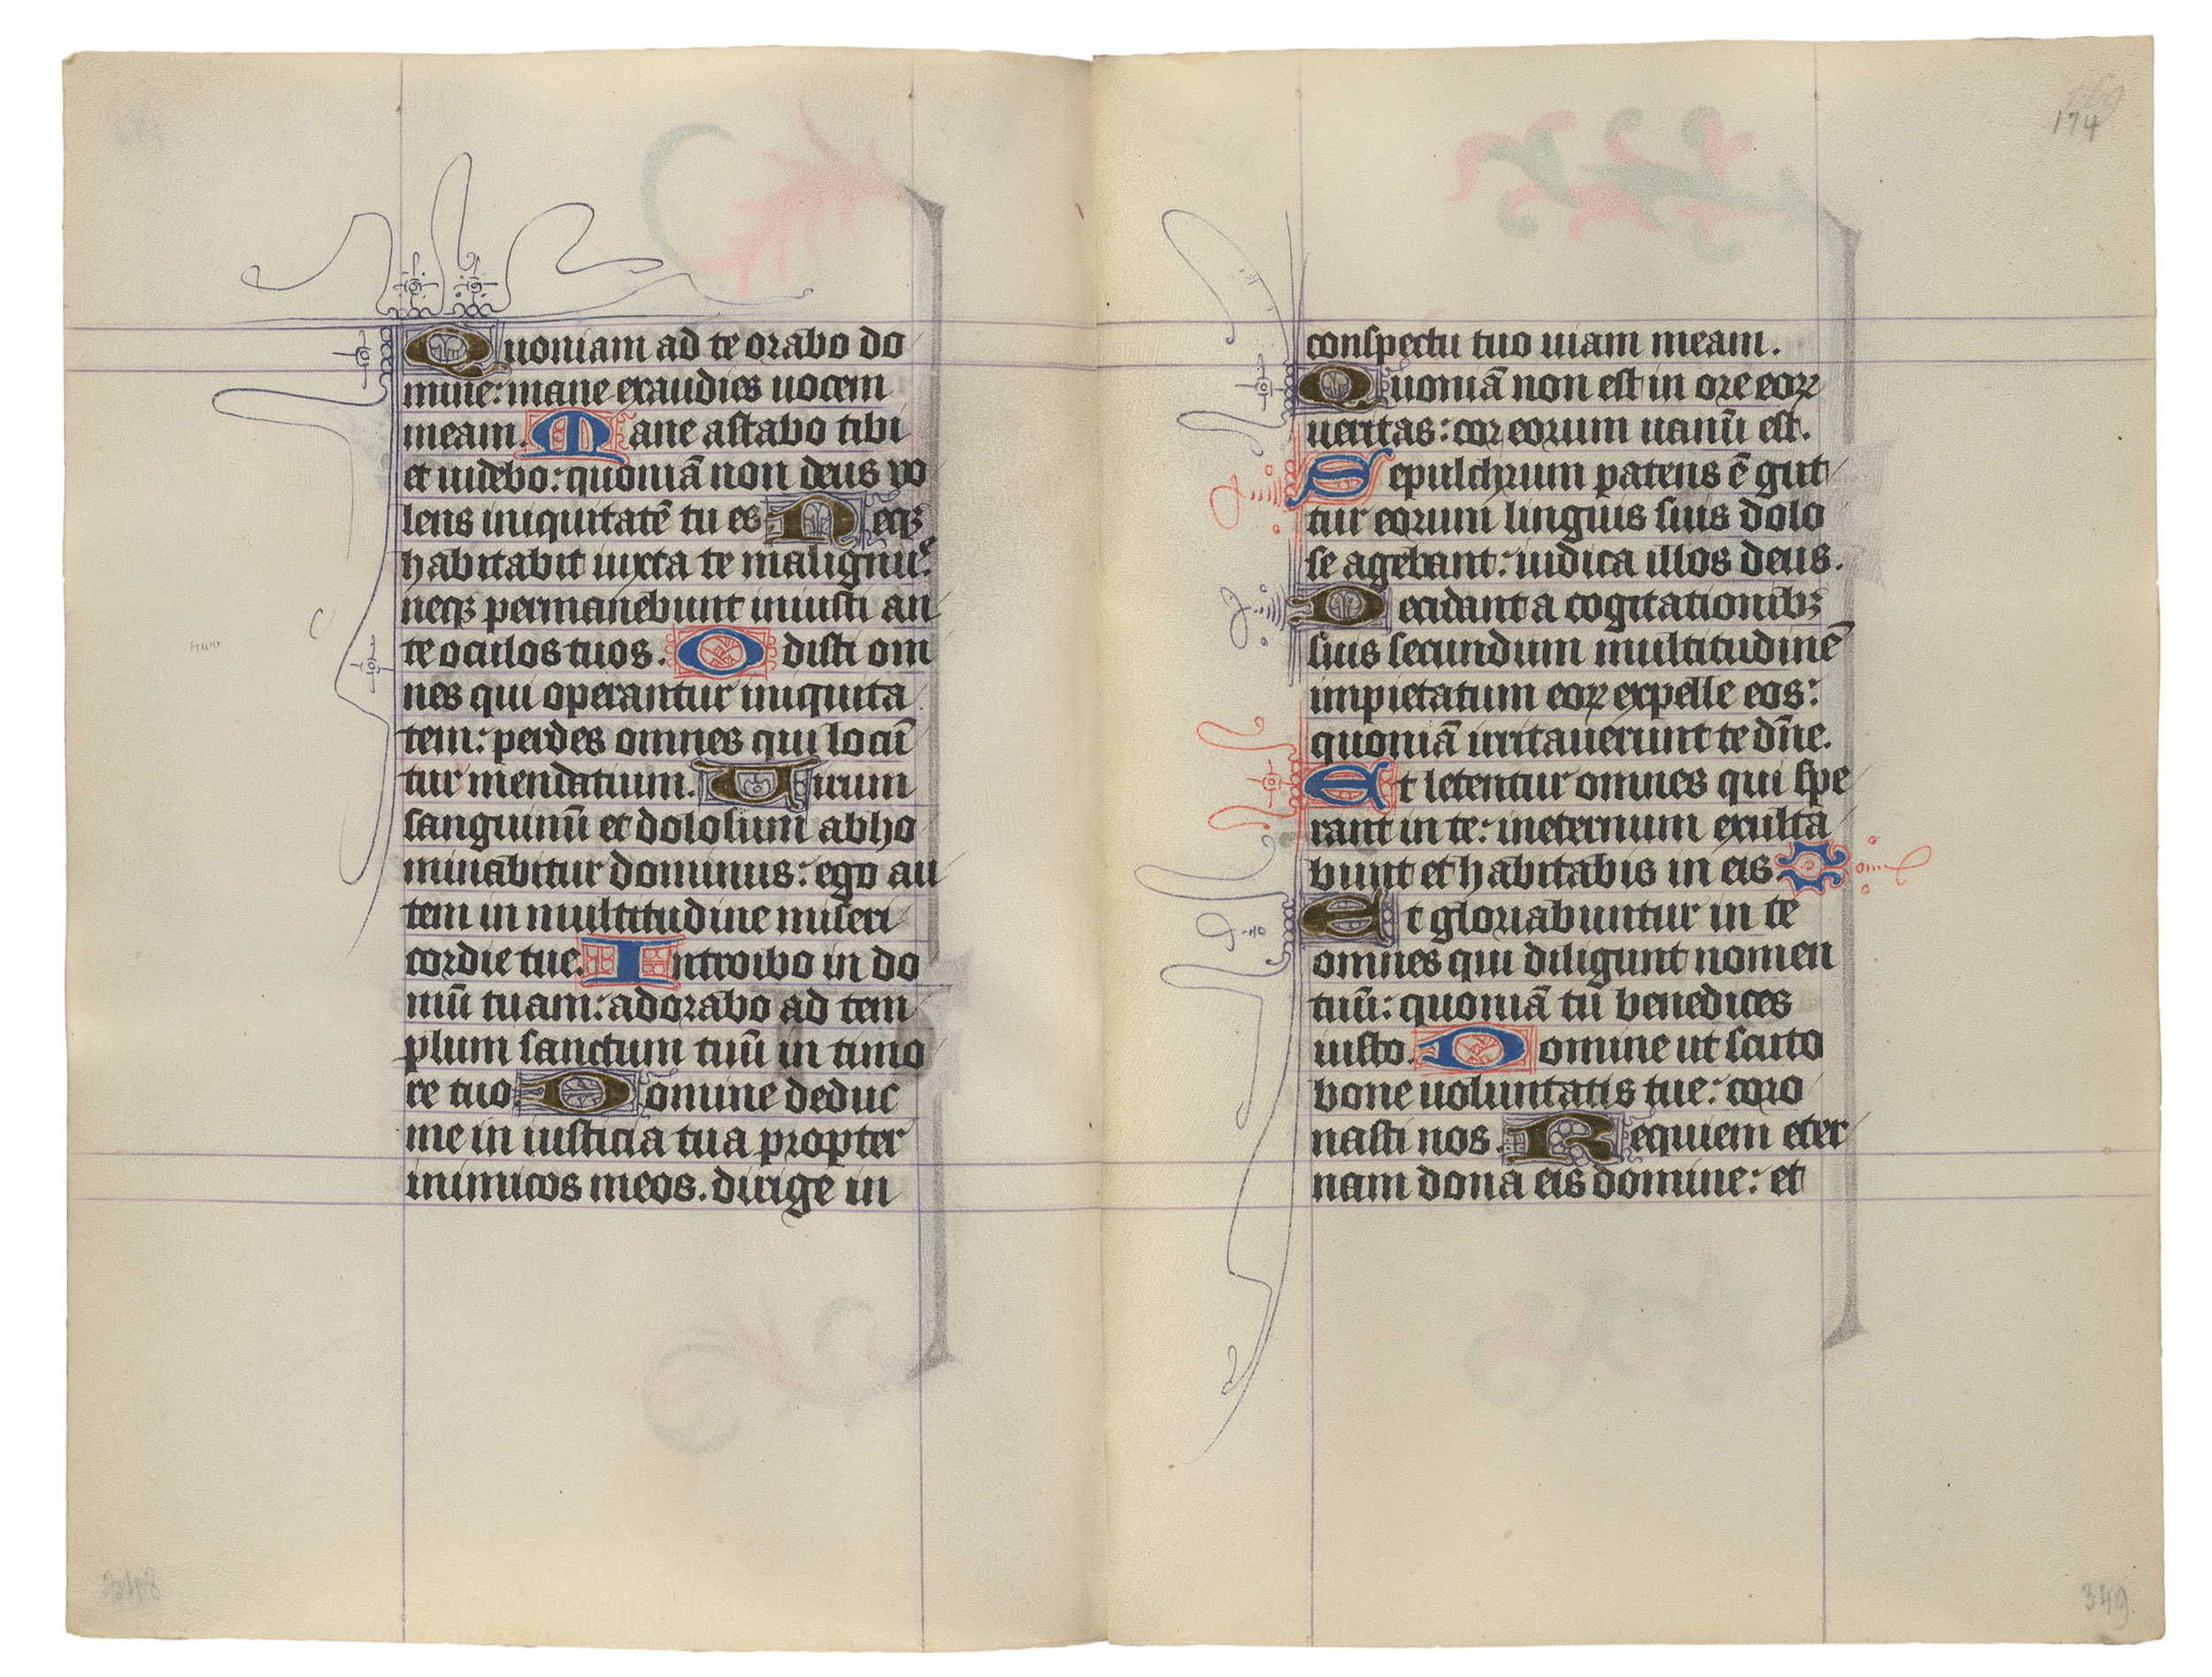 Quoniam ad te orabo do
mine: mane exaudies uocem
meam. Mane astabo tibi
et uidebo: quoniā non deus vo
lens iniquitatē tu es Neqꝫ
habitabit iuxta te malignuˢ:
neqꝫ permanebunt iniusti an
te oculos tuos. Odisti om
nes qui operantur iniquita
tem: perdes omnes qui locū
tur mendatium. Uirum
sanguinū et dolosum abho
minabitur dominus: ego au
tem in multitudine miseri
cordie tue. Introibo in do
mū tuam: adorabo ad tem
plum sanctum tuū in timo
re tuo. Domine deduc
me in iusticia tua propter
inimicos meos. dirige in
174
conspectu tuo uiam meam.
Quoniā non est in ore eoꝝ
ueritas: cor eorum uanū est.
Sepulchrum patens ē gut
tur eorum linguis suis dolo
se agebant: iudica illos deus.
Decidant a cogitationibꝫ
suis secundum multitudinē
impietatum eoꝝ expelle eos:
quoniā irritauerunt te dn̄e.
Et letentur omnes qui spe
rant in te: ineternum exulta
bunt et habitabis in eis.
Et gloriabuntur in te
omnes qui diligunt nomen
tuū: quoniā tu benedices
iusto. Domine ut scuto
bone uoluntatis tue: coro
nasti nos. Requiem eter
nam dona eis domine: et
348
349